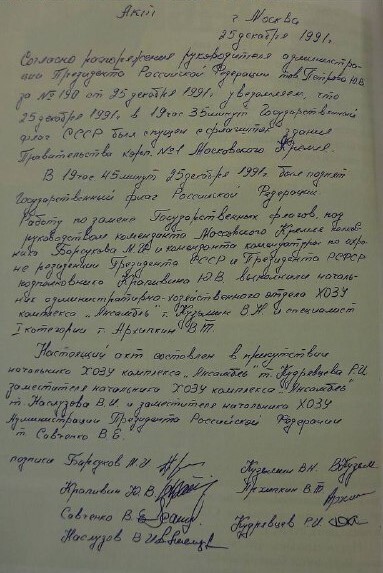 Акт
г Москва
25 декабря 1991г.
Согласно распоряжения руководителя администра-
ции Президента Российской Федерации тов Петрова Ю.В
за № 190 от 25 декабря 1991г, уведомляем, что
25 декабря 1991г, в 19 час 35 минут Государственный
флаг СССР был спущен с флагштока здания
Правительства корп. №1 Московского Кремля.
В 19 час 45 минут 25 декабря 1991г был поднят
Государственный флаг Российской Федерации
Работу по замене Государственных флагов, под
руководством коменданта Московского Кремля полков-
ника Барсукова М.И и коменданта комендатуры по охра-
не резиденции Президента СССР и Президента РСФСР
подполковника Крапивина Ю.В, выполнили началь-
ник административно-хозяйственного отдела ХОЗУ
комплекса "Ансамбль" т. Кузьмин В.Н и специалист
I категории т. Архипкин В.Т.
Настоящий акт составлен в присутствии
начальника ХОЗУ комплекса "Ансамбль" т. Кудрявцева Р.И
заместителя начальника ХОЗУ комплекса "Ансамбль"
т. Наслузова В.И. и заместителя начальника ХОЗУ
Администрации Президента Российской Федерации
т Савченко В.Е.
подписи Барсуков М.И
Кузьмин В.Н.
Крапивин Ю.В.
Архипкин В.Т
Савченко В.Е
Кудрявцев Р.И
Наслузов В.И